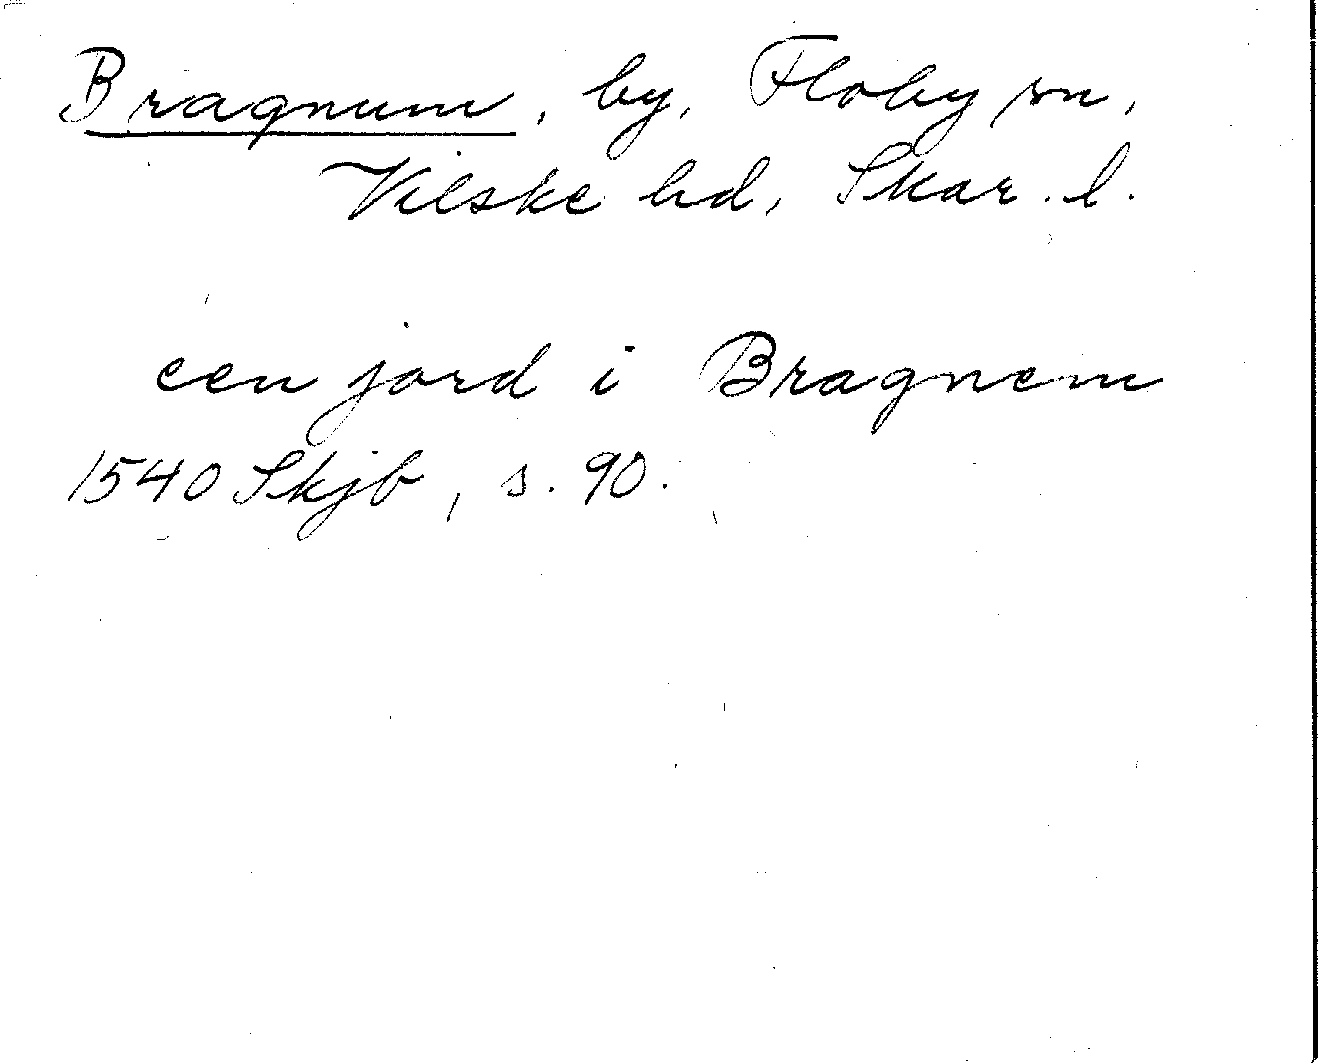 Bragnum, by, Floby sn,
Vilske hd, Skar. l.
een jord i Bragnem
1540 Skjb, s. 90.